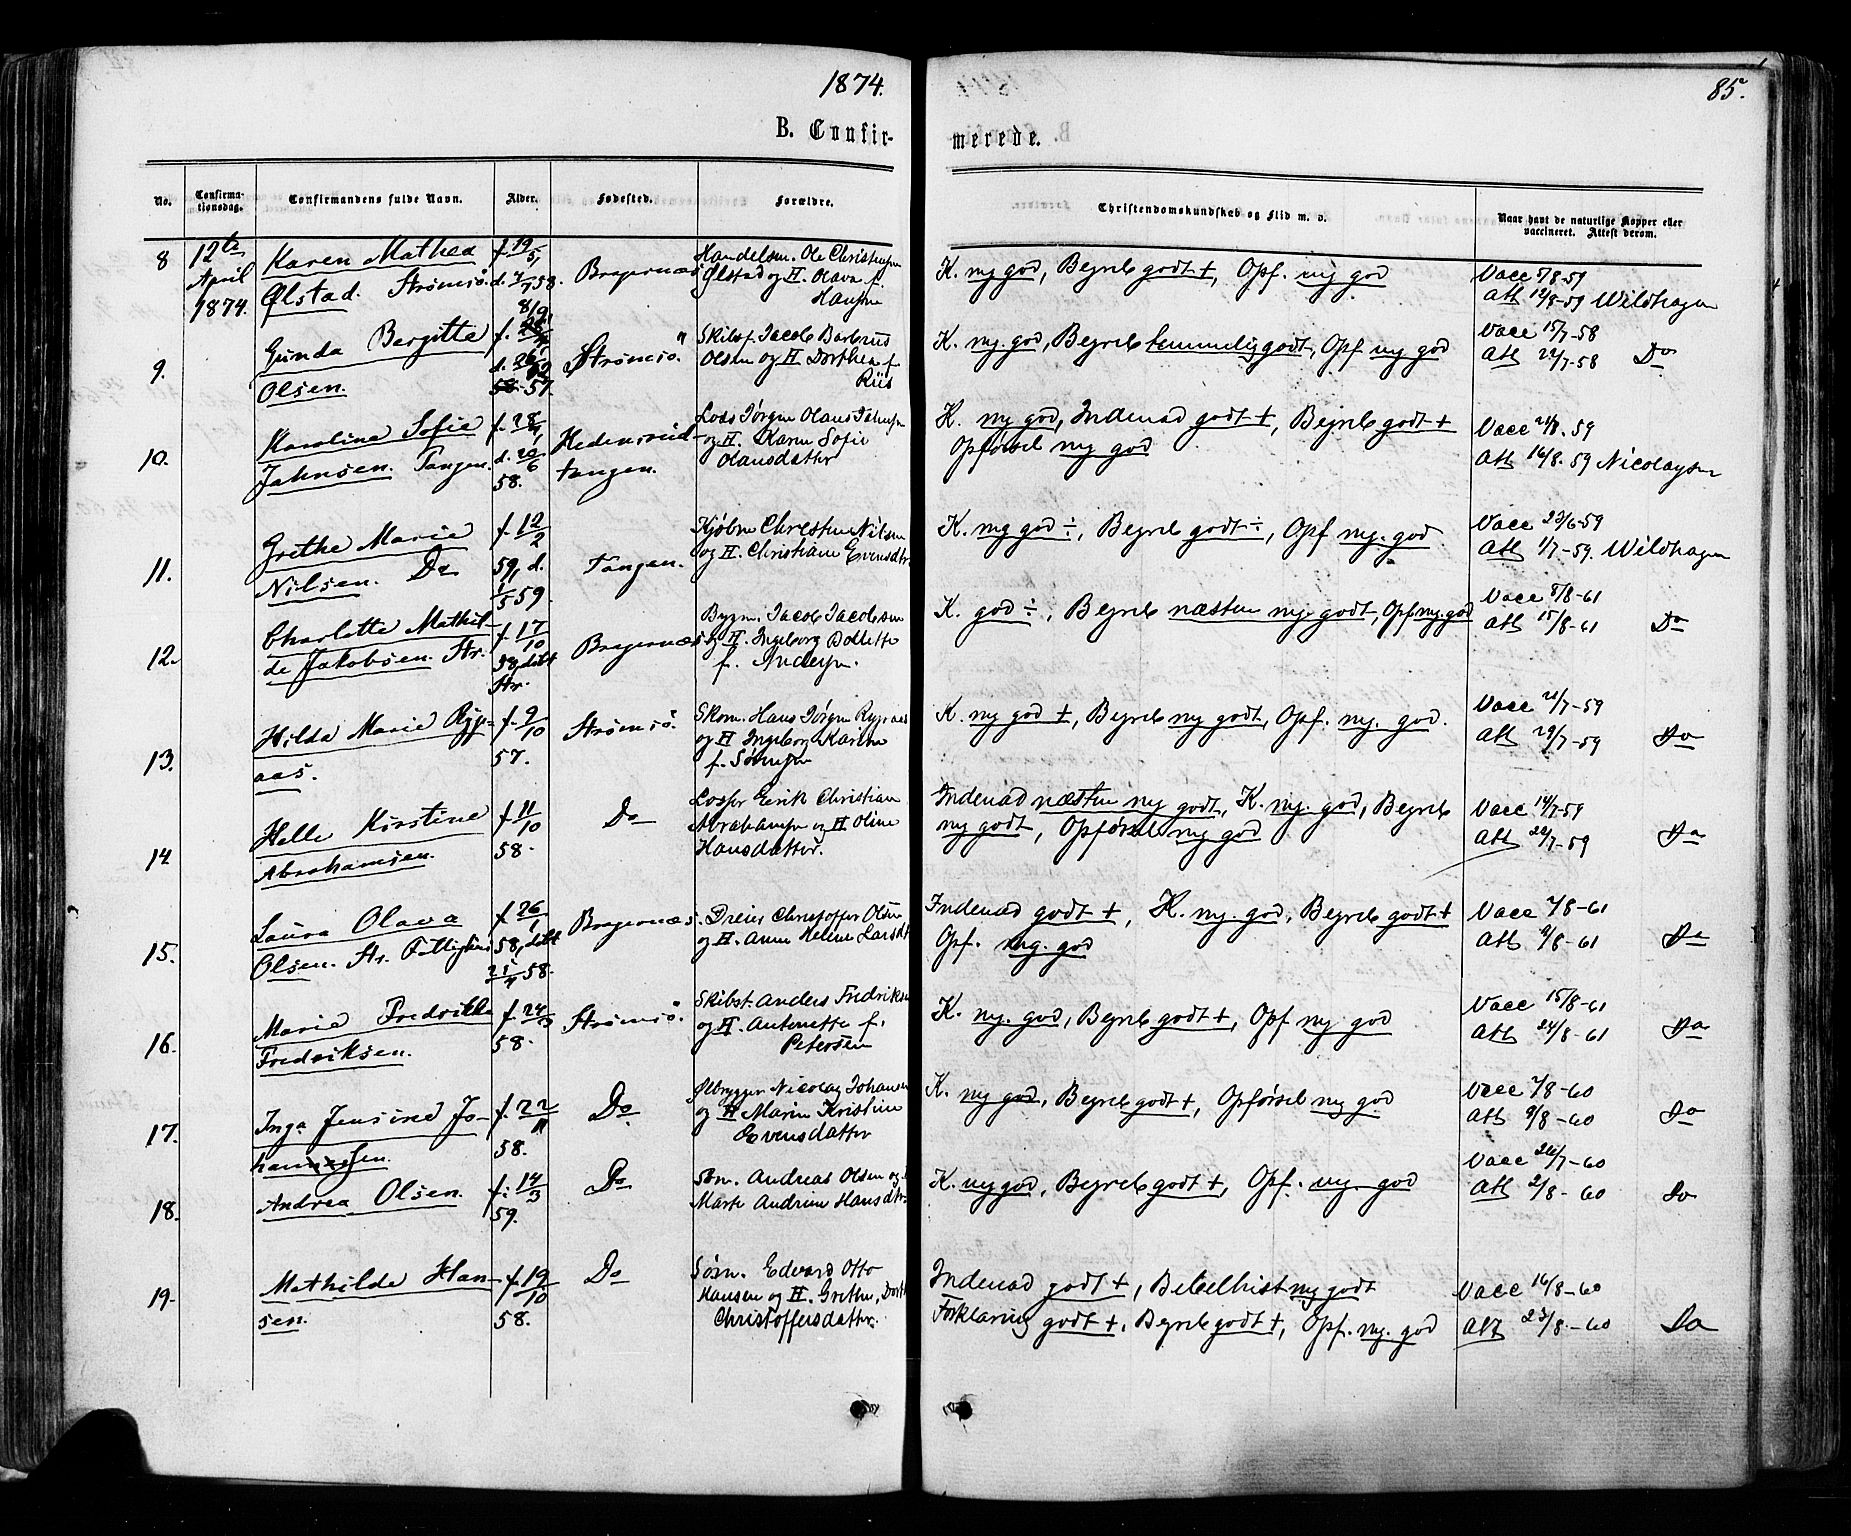 1874.
85.
B. Confir-
merede.
No.
Confirma-
tionsdag.
Confirmandens fulde Navn.
Alder.
Fødested.
Forældre.
Christendomskundskab og Flid m. v.
Naar havt de naturlige Kopper eller
vaccineret. Attest derom.
8
12te
April
1874.
Karen Mathea
Ølstad. Strømsö.
f. 19/5
58.
Bragernæs
Handelsm. Ole Christensen
Ølstad og H. Olava f.
Hansen
K. mg god, Begreb godt +, Opf. mg god
Vacc 5/8-59
Att 12/8-59 Wildhagen
9.
Gunda Bergitte
Olsen.
57.
Strømsö.
Skibsf. Jacob
Olsen og H. Dorthea f.
Riis
K. mg. god, Begreb temmelig godt, Opf mg god
Vacc 15/7-58
Att 22/7-58 Do
10.
Karoline Sofie
Jahnsen. Tangen.
f. 28/4
d. 20/6
58.
Hedensrud-
tangen.
Lods Jørgen Olaus Jahnsen
og H. Karen Sofie
Olausdatter
K. mg god, Indenad godt +, Begreb godt +
Opførsel mg god
Vacc 24/8-59
Att 16/8-59 Nicolaysen
11.
Grethe Marie
Nilsen. Do
f. 12/2
59, d.
1/5 59
Tangen.
Kjøbm Christen Nilsen
og H. Christiane Evensdtr.
K. mg god ÷, Begreb godt ÷, Opf mg. god
Vacc 23/6-59
Att 1/7-59. Wildhagen
12.
Charlotte Mathil-
de Jakobsen. Str.
f. 17/10
58, døbt
Str.
Bragernæs
Bygm. Jacob Jacobsen
og H. Ingeborg Dollette
f. Andersen.
K. god ÷, Begreb næsten mg godt, Opf mg. god
Vacc 8/8-61
Att 15/8-61 Do
13.
Hilda Marie Ryg-
aas.
f. 9/10
57.
Strømsö.
Skom. Hans Jørgen Rygaas
og H Ingeborg Karine
f. Sørensen
K. mg god +, Begreb mg godt, Opf. mg. god.
Vacc 21/7-59
Att 29/7-59 Do
14
Helle Kirstine
Abrahamsen.
f. 11/10
58.
Do
Erik Christian
Abrahamsen og H Oline
Hansdatter.
Indenad næsten mg godt, K. mg. god, Begreb
mg godt, Opførsel mg god
Vacc 14/7-59
Att 22/7-59 Do
15.
Laura Olava
Olsen. Str.
f. 26/1
58, døbt
25/4 58.
Bragernæs.
Dreier Christoffer Olsen
og H. Anne Helene Larsdt
Indenad godt +, K. mg. god, Begreb godt +
Opf. mg. god
Vacc 2/8-61
Att 9/8-61 Do
16.
Marie Fredrikke
Fredriksen.
f. 24/3
58.
Strømsö.
Skibst. Anders Fredriksen
og H. Antonette f.
Petersen
K. mg. god, Begreb godt +, Opf mg god
Vacc 15/8-61
Att 24/8-61 Do
17.
Inga Jensine Jo-
hannesen.
f. 22/11
58.
Do
Ølbrygger Nicolay Johansen
og H Maren Kristine
Evensdatter
K. mg god, Begreb godt +, Opførsel mg god
Vacc 2/8-60
Att 9/8-60 Do
18.
Andrea Olsen.
f. 14/3
59.
Do
Søm. Andreas Olsen og
Marte Andrine Hansdtr
K. mg god, Begreb godt +, Opf. mg. god
Vacc 26/7-60
Att 2/8-60 Do
19.
Mathilde Han-
sen.
f. 19/10
58.
Do
Søm. Edvard Otto
Hansen og H. Grethe, Dorth
Christoffersdatter.
Indenad godt +, Bibelhist mg godt
Forklaring godt +, Begreb godt +, Opf. mg. god
Vacc 16/8-60
Att 23/8-60 Do